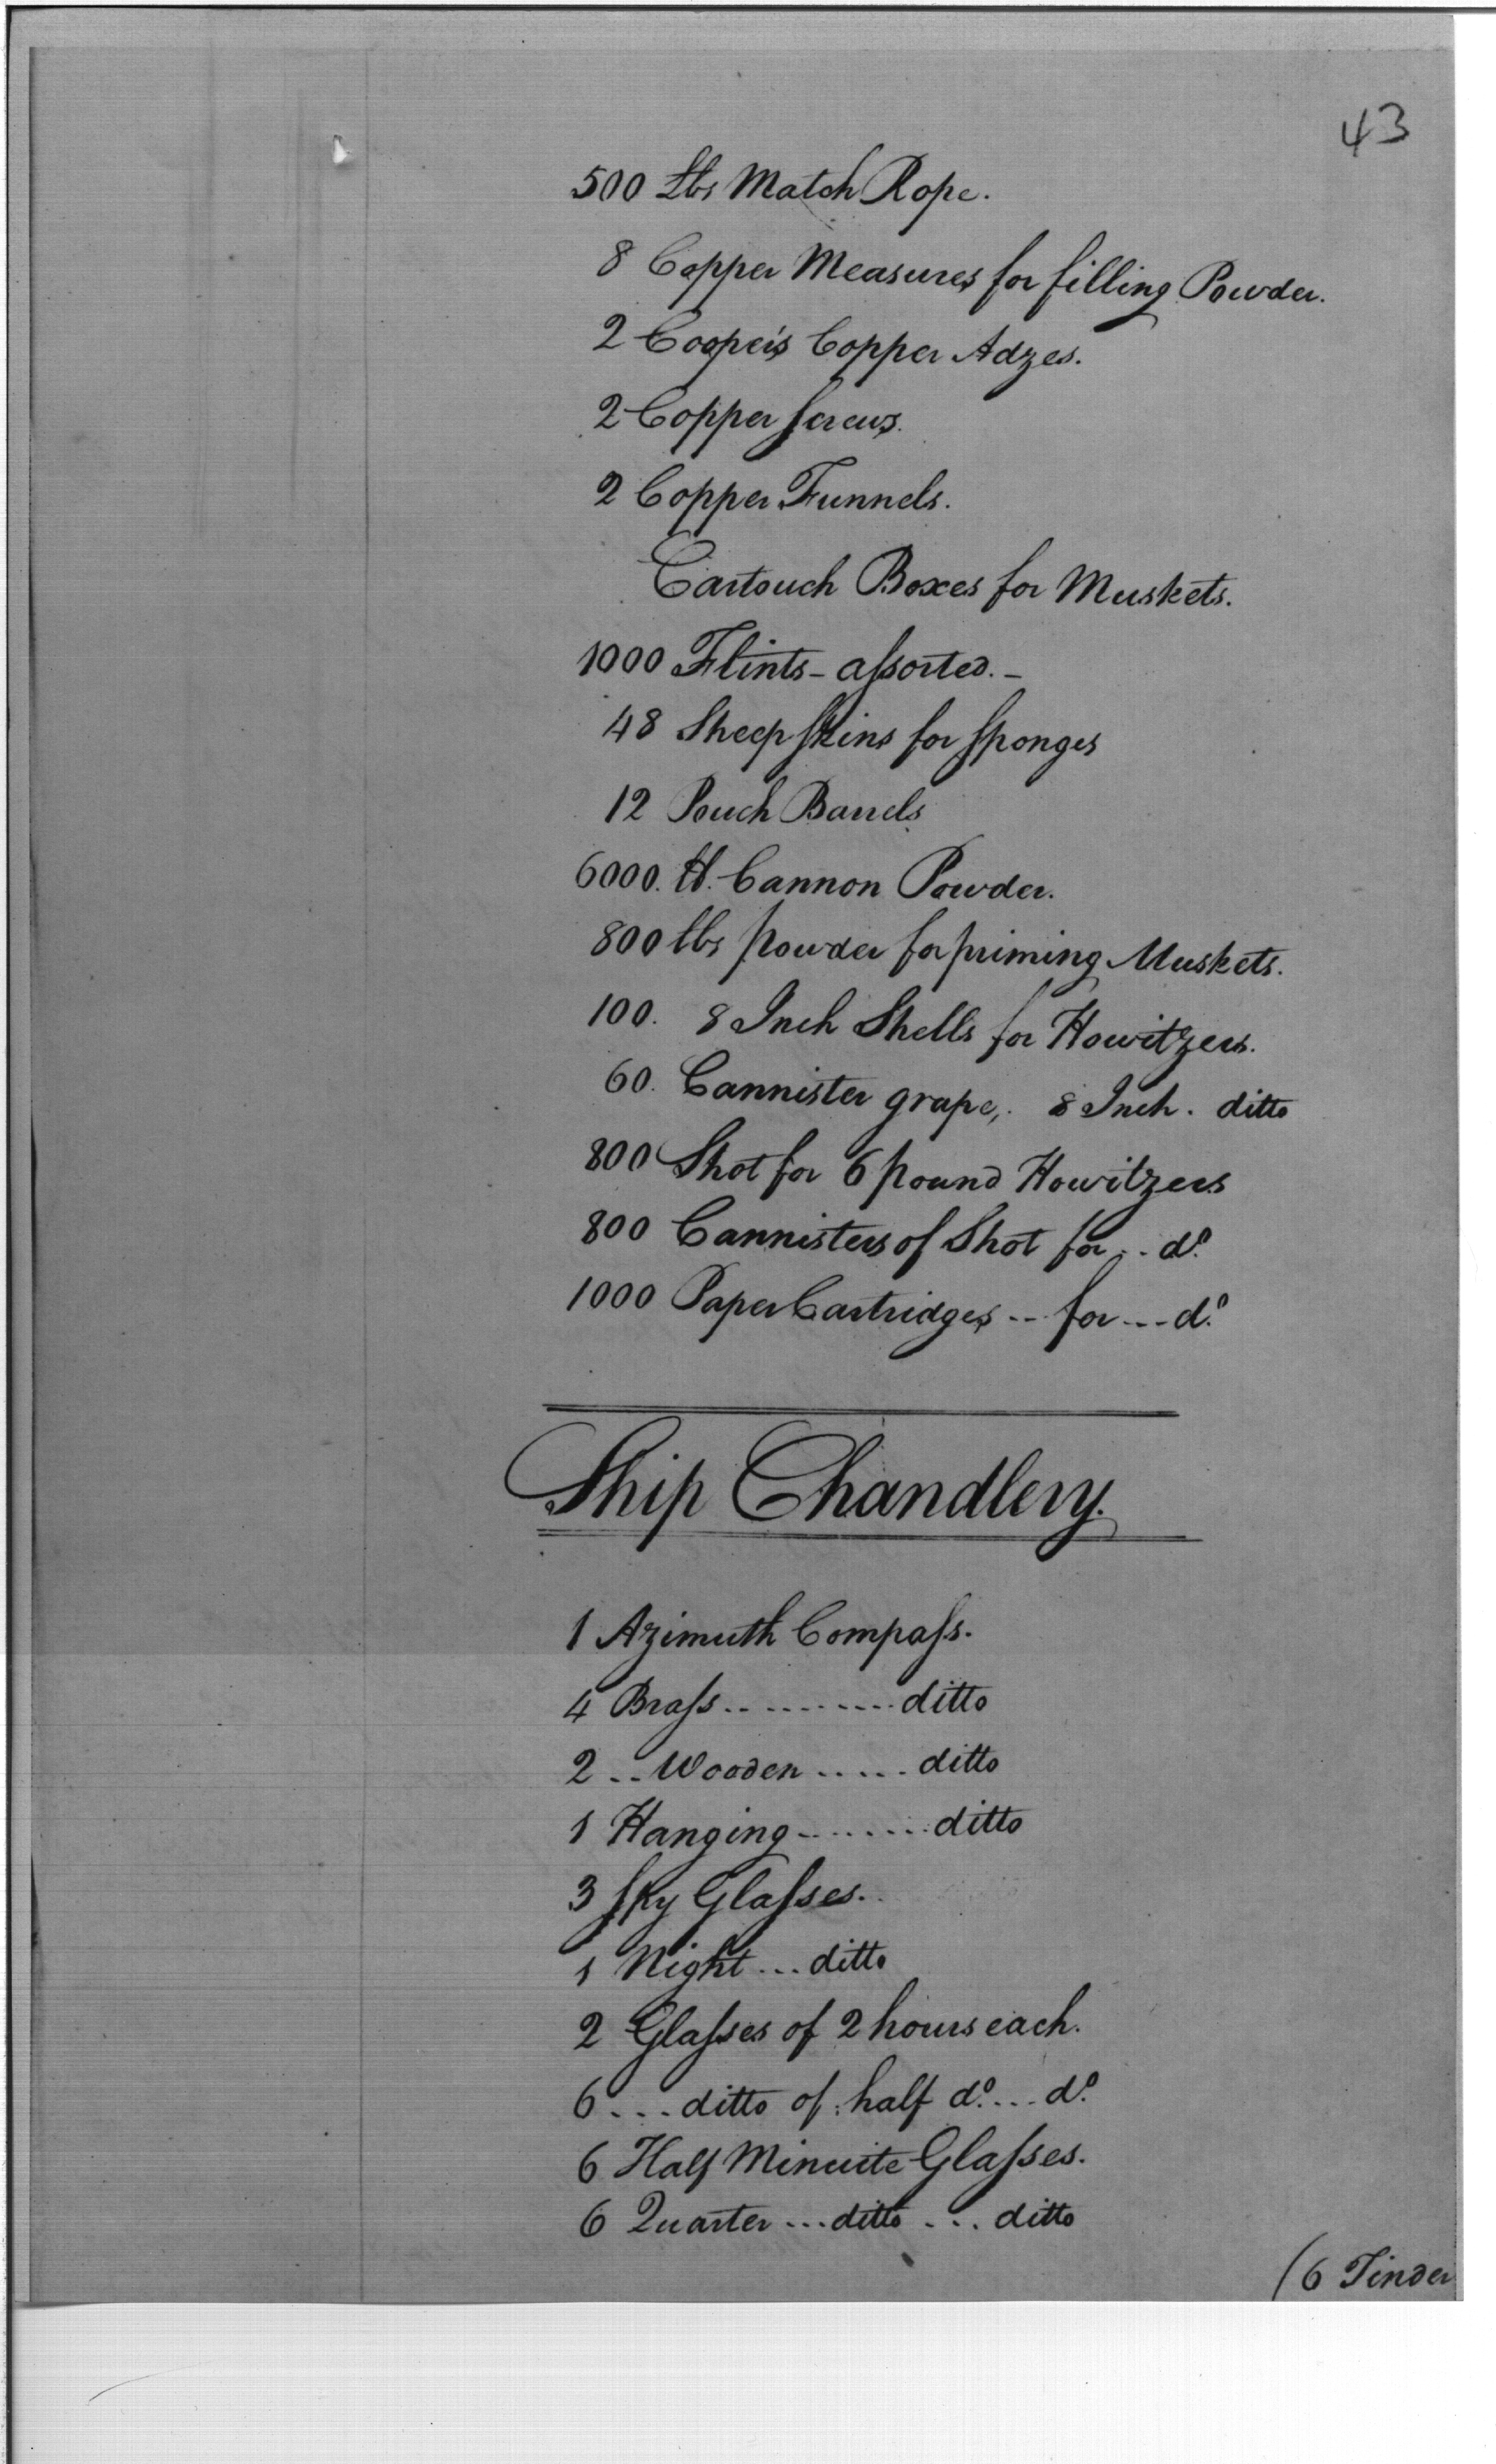 43
500 Lbs Match Rope.
8 Copper Measures for filling Powder.
2 Cooper's Copper Adzes.
2 Copper Screws.
2 Copper Funnels.
Cartouch Boxes for Muskets.
1000 Flints - aſsorted. -
48 Sheep Skins for Sponges
12 Pouch Barrels
6000. ℔. Cannon Powder.
800 lbs powder for priming Muskets.
100. 8 Inch Shells for Howitzers.
60. Cannister grape, 8 Inch. ditto
800 Shot for 6 pound Howitzers
800 Cannisters of Shot for .. do.
1000 Paper Cartridges -- for --- do.
Ship Chandlery.
1 Azimuth Compaſs.
4 Braſs .......... ditto
2 .. Wooden ..... ditto
1 Hanging ........ ditto
3 Spy Glaſses.
1 Night ... ditto
2 Glaſses of 2 hours each.
6 ... ditto of half do. ... do.
6 Half Minuite Glaſses.
6 Quarter ... ditto ... ditto
(6 Tinder